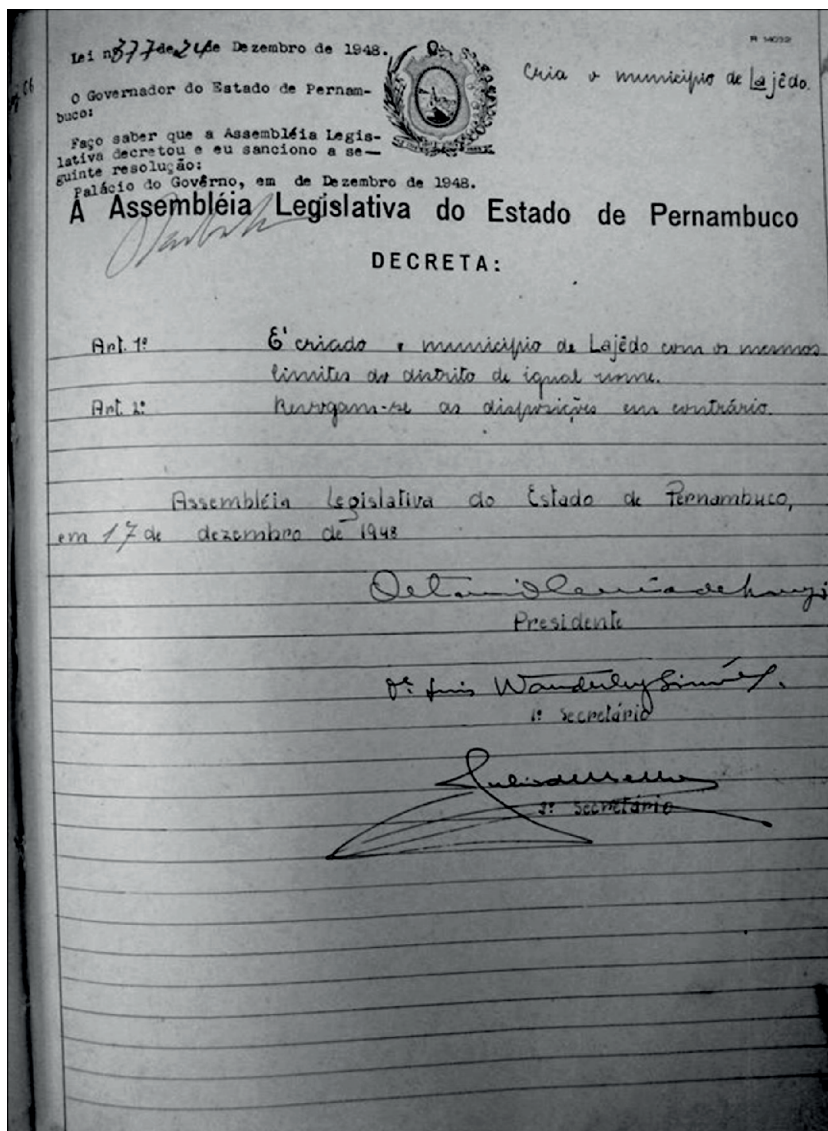 Lei nº 377 de 24 de Dezembro de 1948.
O Governador do Estado de Pernam-
buco:
Faço saber que a Assembléia Legis-
lativa decretou e eu sanciono a se-
guinte resolução:
Palácio do Govêrno, em de Dezembro de 1948.
Cria o município de Lajêdo.
A Assembléia Legislativa do Estado de Pernambuco
DECRETA:
Art. 1º É criado o município de Lajêdo com os mesmos
limites do distrito de igual nome.
Art. 2º Revogam-se as disposições em contrário.
Assembléia Legislativa do Estado de Pernambuco,
em 17 de dezembro de 1948
Presidente
Wanderley Simões.
1º Secretário
2º Secretário